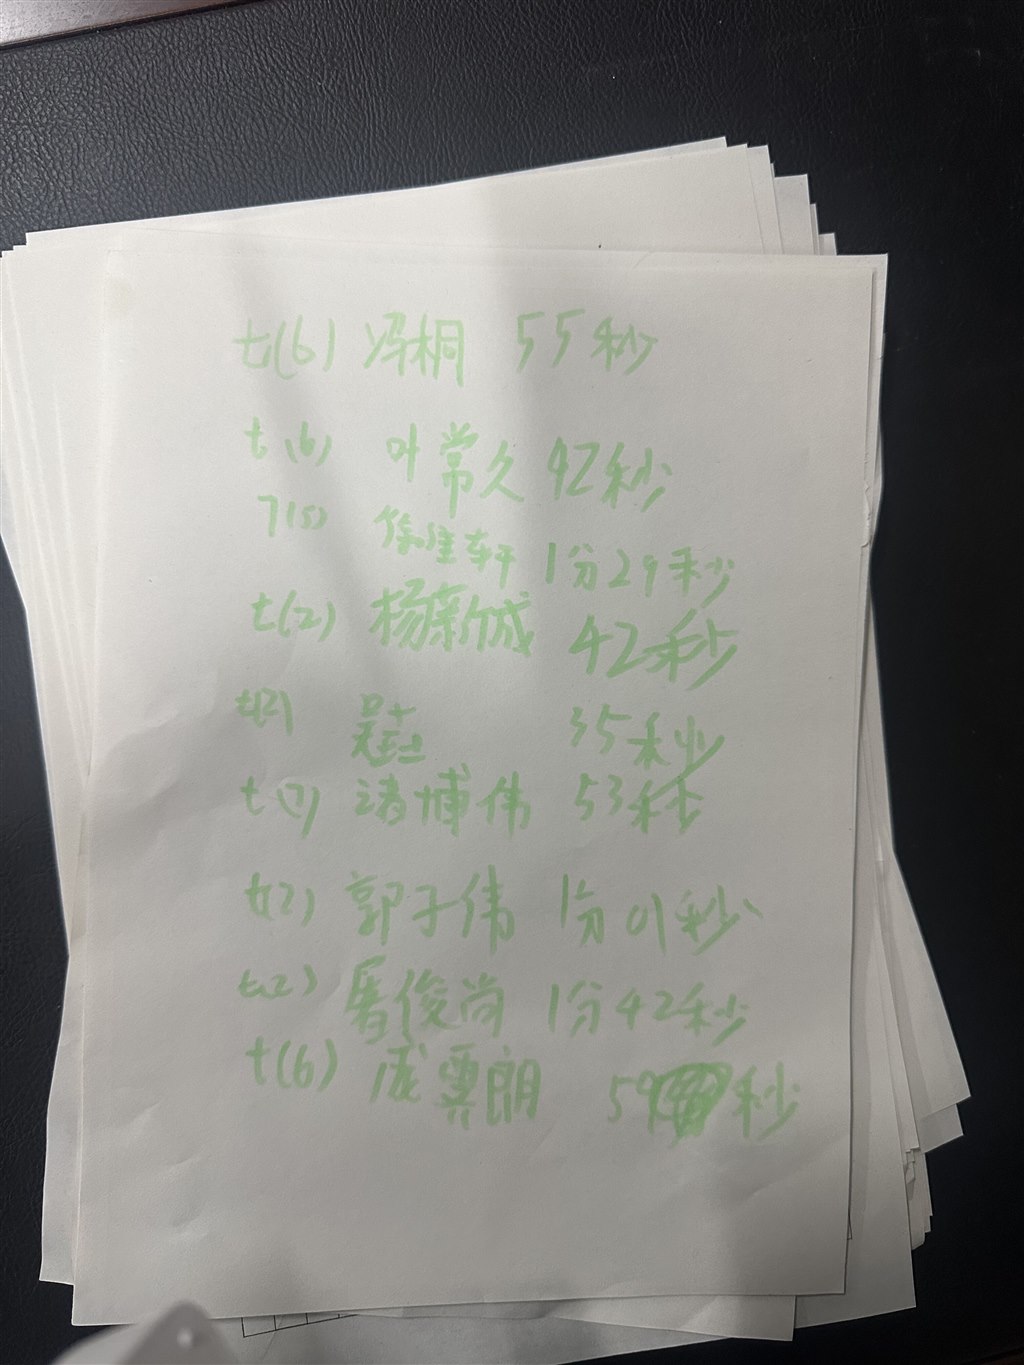 七(6) 冯桐 55秒
七(6) 叶常久 42秒
7(5) 徐佳轩 1分29秒
七(2) 杨新城 42秒
七(2) 35秒
七(7) 诸博伟 53秒
七(2) 郭子伟 1分01秒
七(2) 屠俊尚 1分42秒
七(6) 庞票朗 59秒